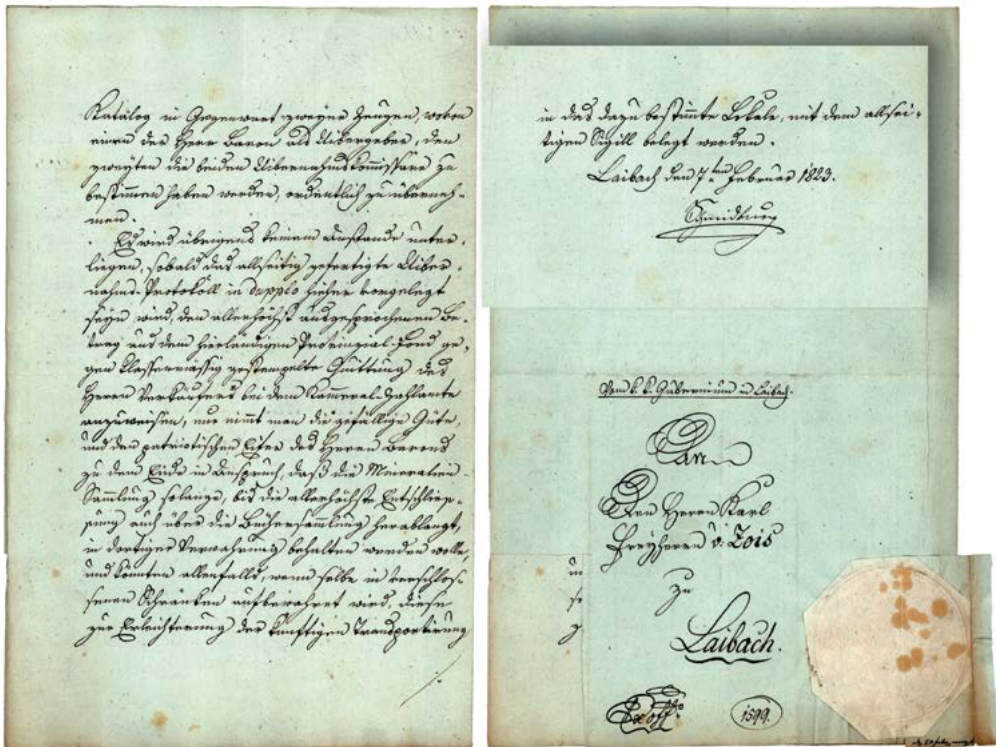 Katalog in Gegenwart zweyer Zeugen, wovon
einen der Herr Baron als Uibergeber, den
zweyten die beiden Uibernahmskommissäre zu
bestimmen haben werden, ordentlich zu überneh-
men.
Es wird übrigens keinem Anstande unter-
liegen, sobald das allseitig gefertigte Uiber-
nahms-Protokoll in duplo hieher vorgelegt
seyn wird, den allerhöchst ausgesprochenen Be-
trag aus dem hierländigen Provinzial-Fond ge-
gen klassenmässig gestempelte Quittung des
Herrn Verkäufers bei dem Kammeral-Zahlamte
anzuweisen, nur nimmt man die gefällige Güte,
und den patriotischen Eifer des Herren Barons
zu dem Ende in Anspruch, daß die Mineralien-
Sammlung solange, bis die allerhöchste Entschlies-
sung auch über die Büchersammlung herablangt,
in dortiger Verwahrung behalten werden wolle,
und könnten allenfalls, wenn selbe in verschlos-
senen Schränken aufbewahret wird, diese
zur Erleichterung der künftigen Transportirung
in das dazu bestimmte Lokale, mit dem allsei-
tigen Sigill belegt werden.
Laibach den 7ten Februar 1823.
Schmidburg
Vom k. k. Gubernium in Laibach.
An
Den Herrn Karl
Freyherrn v. Zois
zu
Laibach.
Exoffo.
1599.